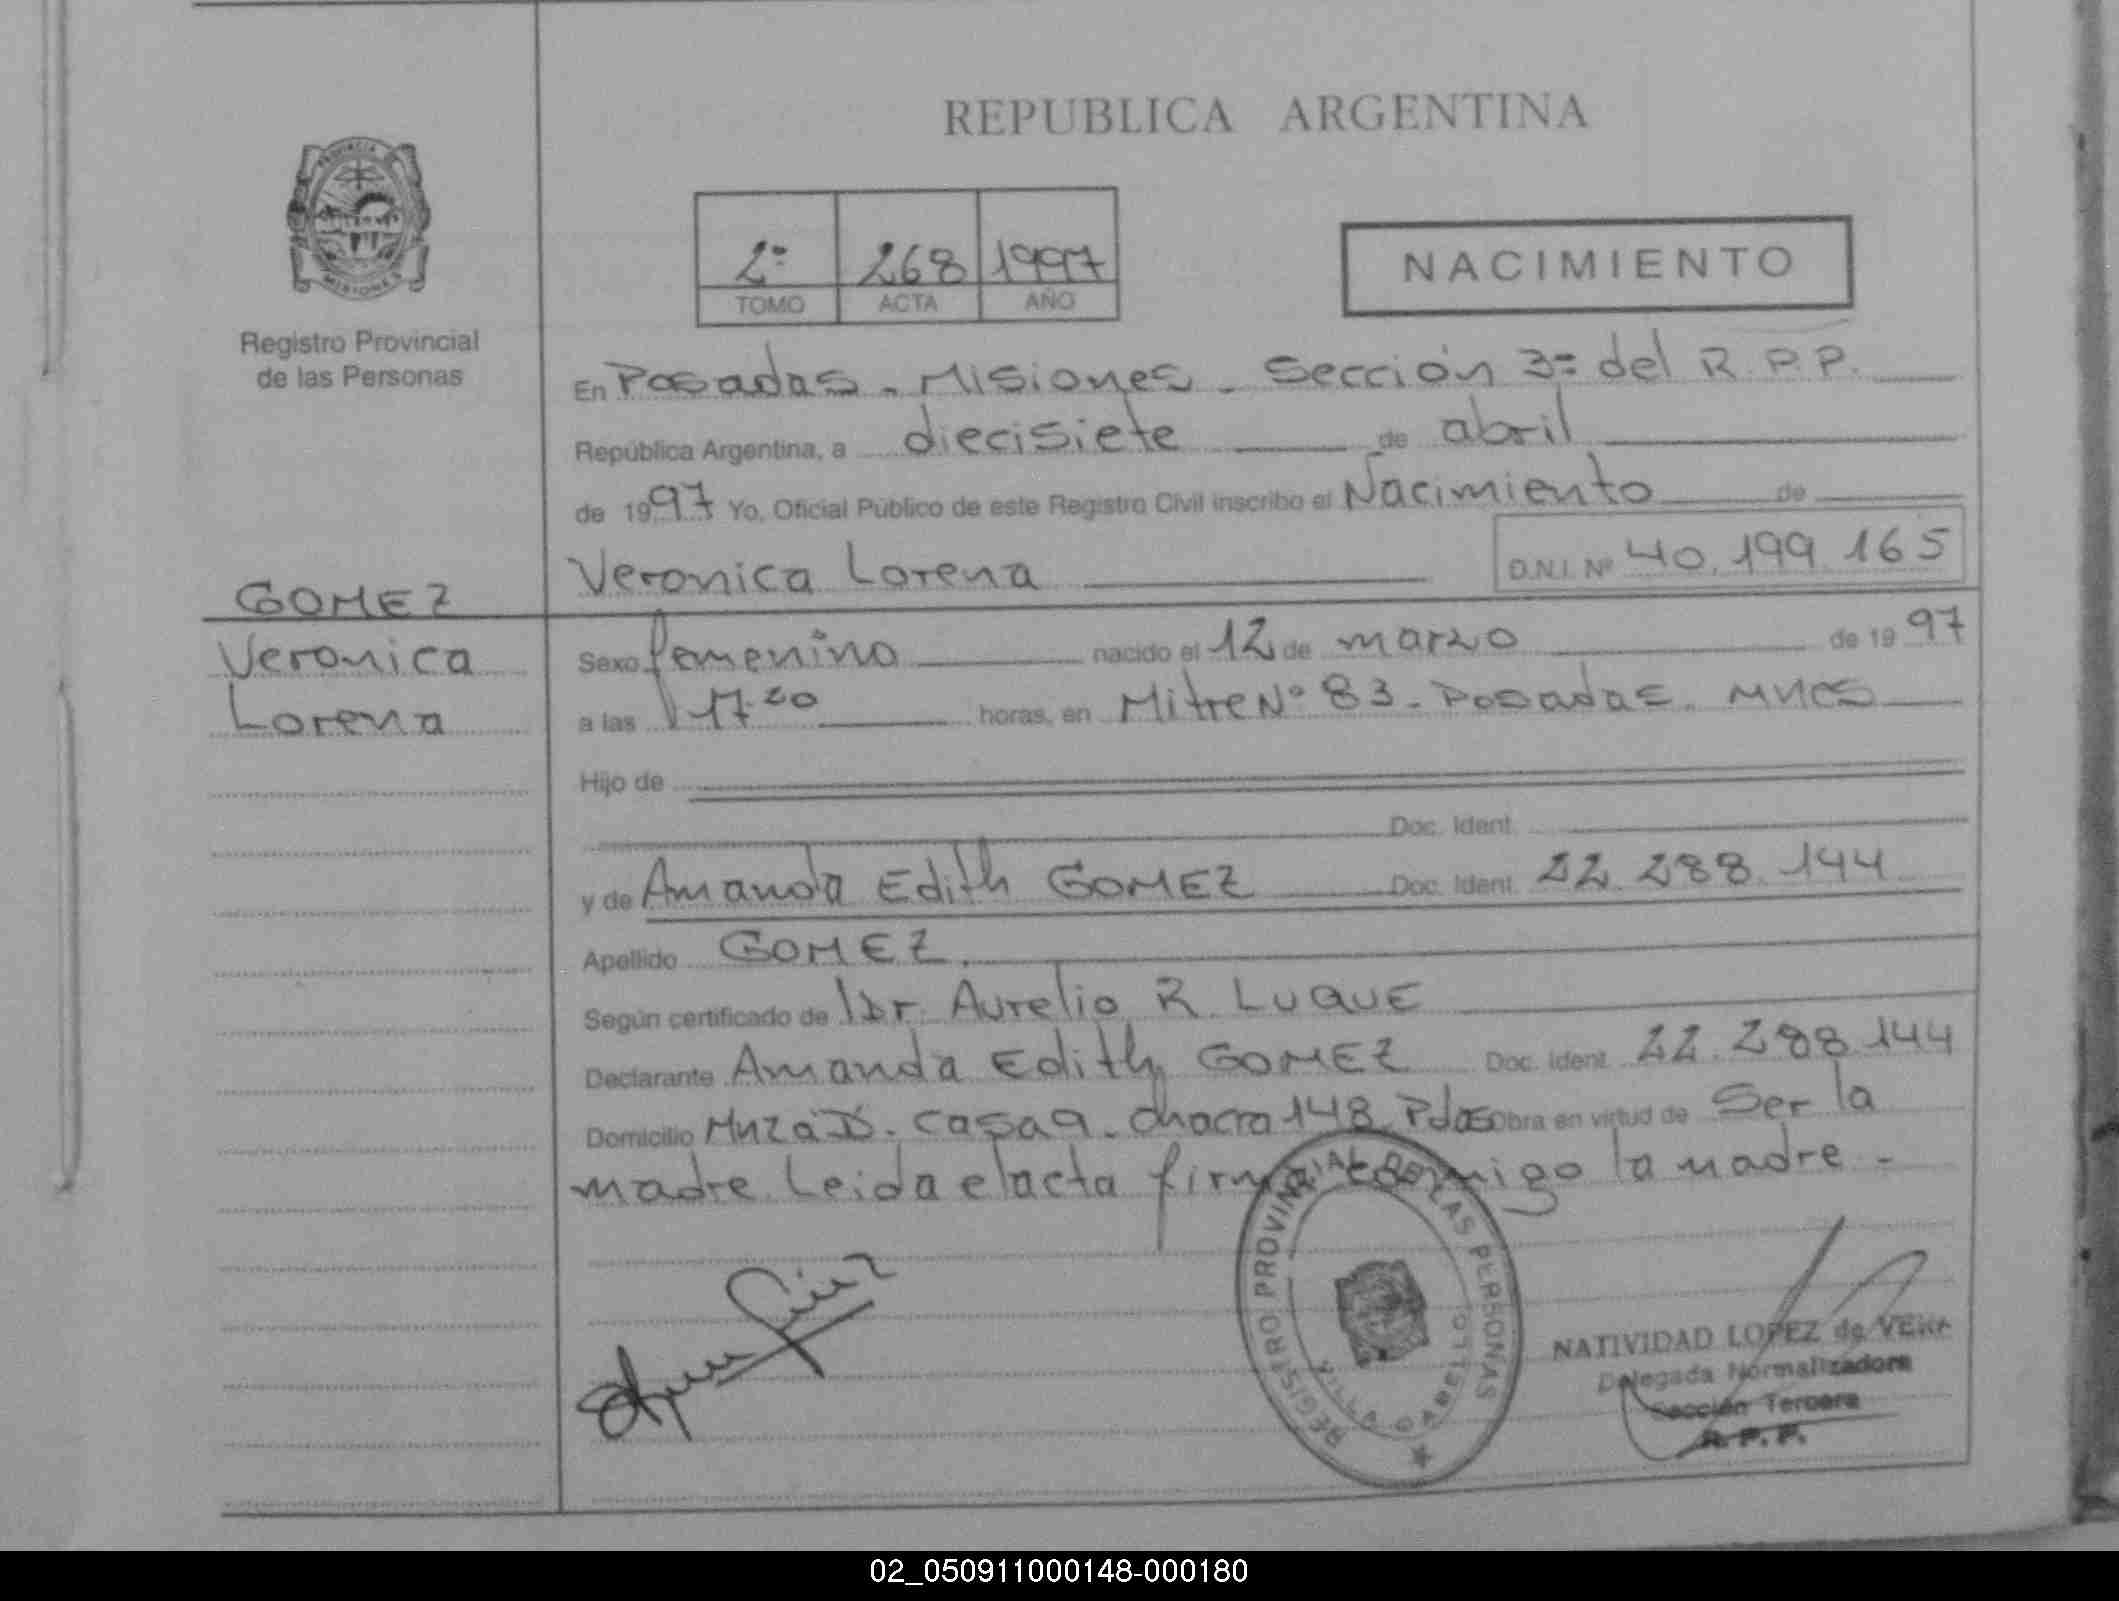 REPUBLICA ARGENTINA
PROVINCIA DE
MISIONES
Registro Provincial
de las Personas
2º 268 1997
TOMO ACTA AÑO
NACIMIENTO
En Posadas - Misiones - Sección 3ª del R.P.P.
República Argentina, a diecisiete de abril
de 1997 Yo, Oficial Público de este Registro Civil inscribo el Nacimiento de
Veronica Lorena D.N.I. Nº 40.199.165
GOMEZ
Veronica
Lorena
Sexo femenino nacido el 12 de marzo de 1997
a las 17.20 horas, en Mitre Nº 83 - Posadas. Mnes
Hijo de
Doc. Ident.
y de Amanda Edith GOMEZ Doc. Ident. 22.288.144
Apellido GOMEZ.
Según certificado de Dr. Aurelio R. LUQUE
Declarante Amanda Edith GOMEZ Doc. Ident. 22.288.144
Domicilio Mnza D. casa 9. chacra 148. Pdas Obra en virtud de Ser la
madre. Leida el acta firma conmigo la madre -
REGISTRO PROVINCIAL DE LAS PERSONAS
VILLA CABELLO
NATIVIDAD LOPEZ de VERA
Delegada Normalizadora
Sección Tercera
R. P. P.
02_050911000148-000180